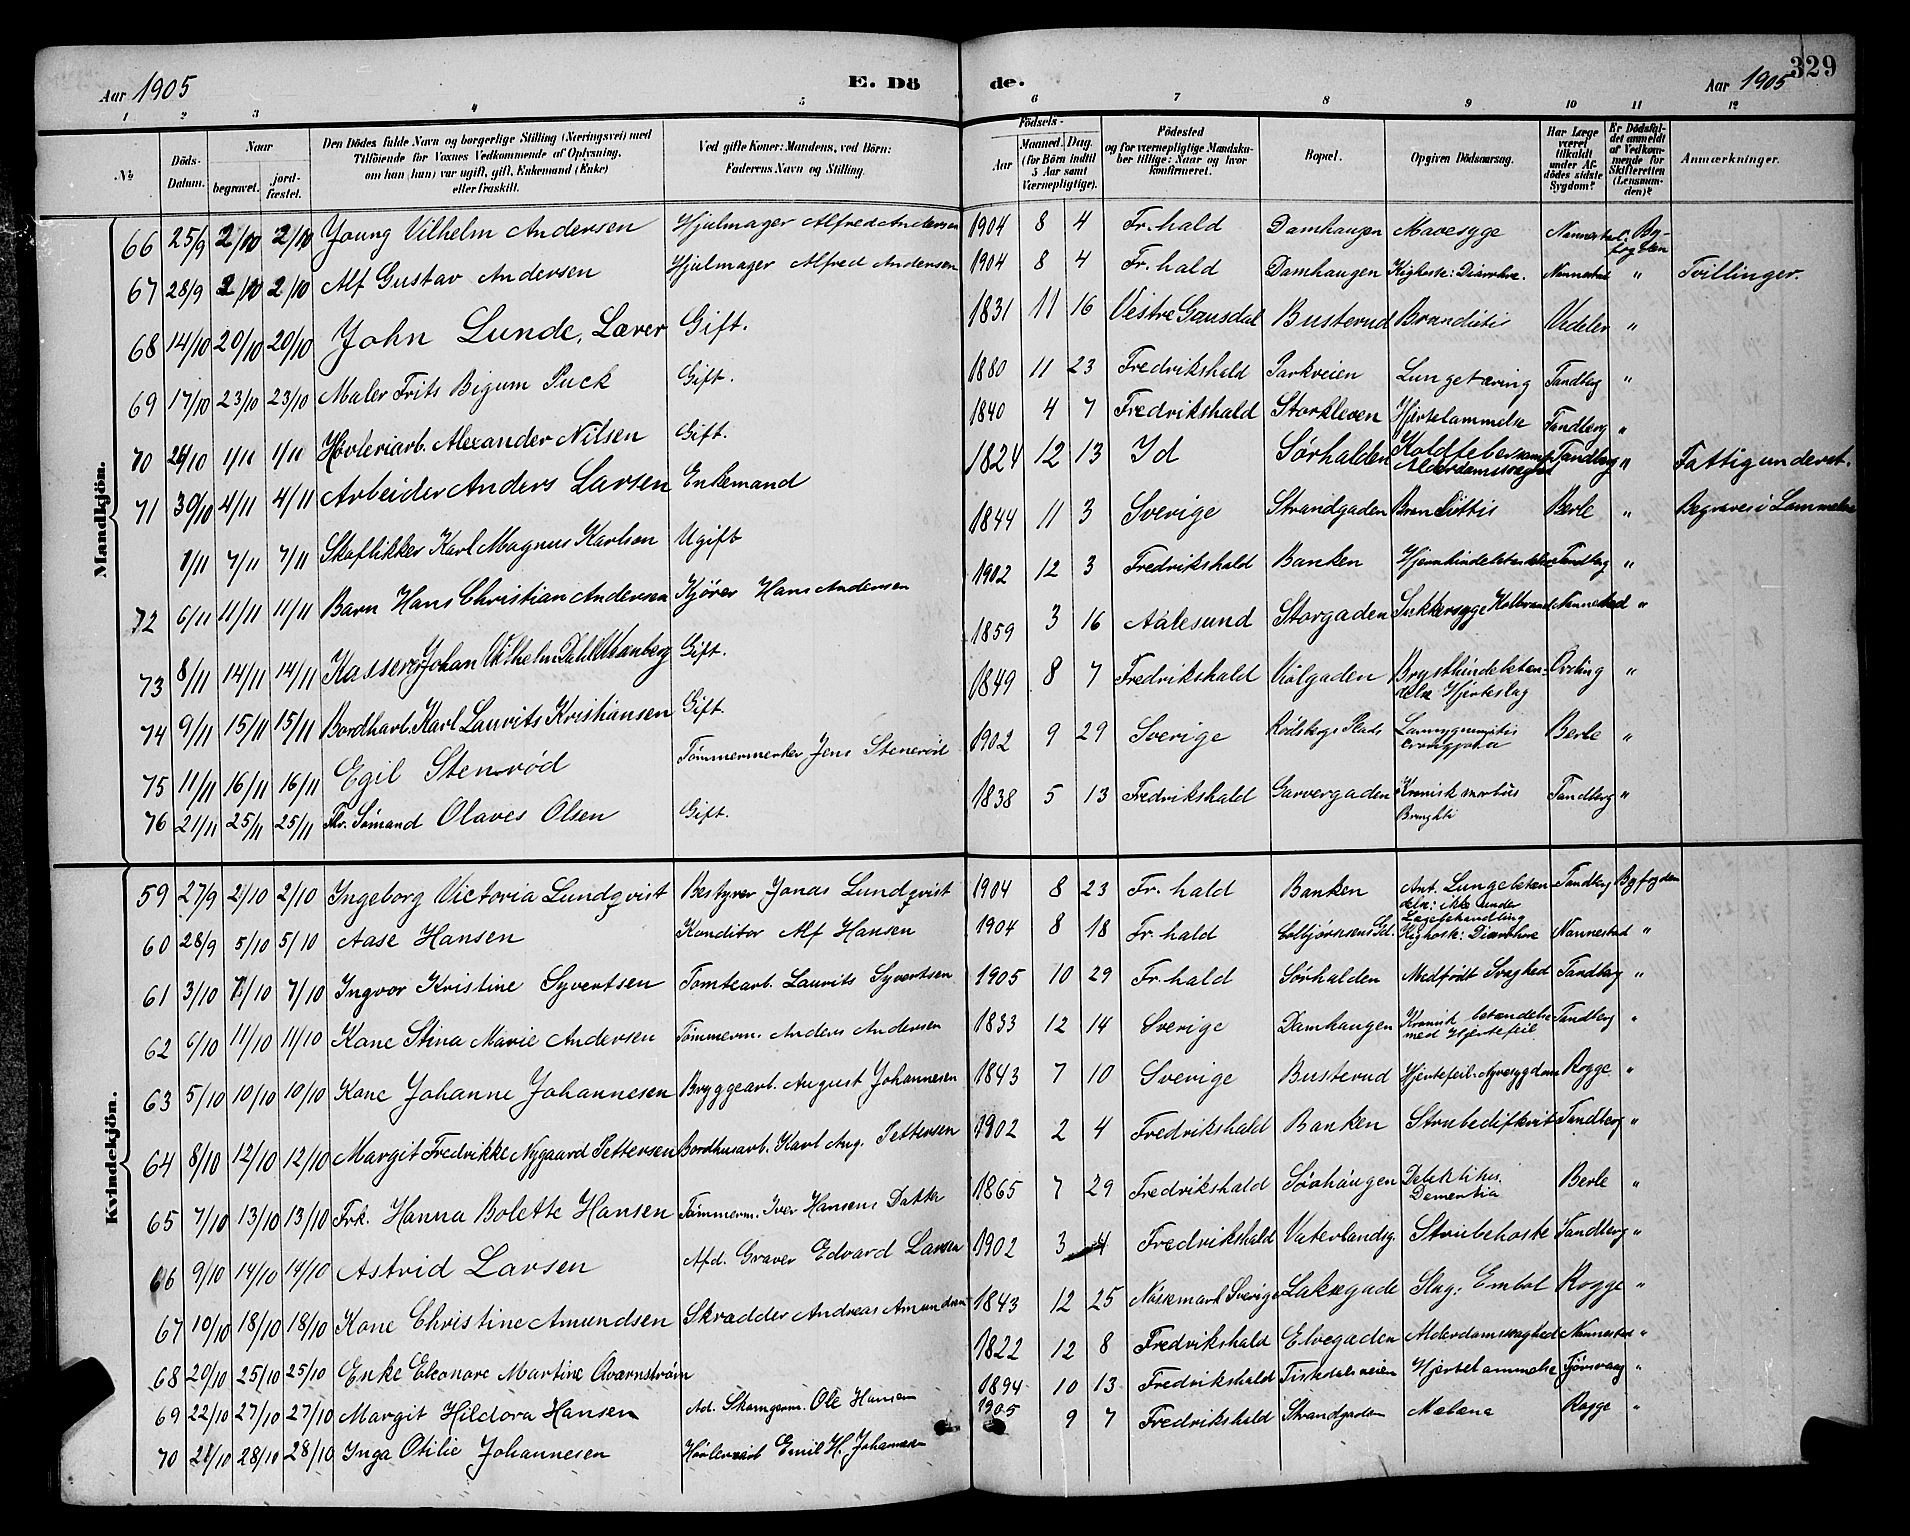 Aar 1905 E. Dö
de. Aar 1905 329
1 2 3 4 5 6 7 8 9 10 11 12
No
Döds-Datum.
Naar
begravet.
jord-fæstet.
Den Dödes fulde Navn og borgerlige Stilling (Næringsvei) med
Tilföiende for Voxnes Vedkommende af Oplysning,
om han (hun) var ugift, gift, Enkemand (Enke)
eller fraskilt.
Ved gifte Koner: Mandens, ved Börn:
Faderens Navn og Stilling.
Födsels-
Aar
Maaned. Dag.
(for Börn indtil 5 Aar samt Værnepligtige).
Födested
og for værnepligtige Mandskaber tillige: Naar og hvor konfirmeret.
Bopæl.
Opgiven Dödsaarsag.
Har Læge været tilkaldt under Afdödes sidste Sygdom?
Er Dödsfaldet anmeldt af Vedkommende for Skifteretten (Lensmanden)?
Anmærkninger.
Mandkjön.
66 25/9 2/10 2/10 Young Vilhelm Andersen Hjulmager Alfred Andersen 1904 8 4 Fr.hald Damhaugen Mavesyge Nannestad Byfogden
67 28/9 2/10 2/10 Alf Gustav Andersen Hjulmager Alfred Andersen 1904 8 4 Fr.hald Damhaugen Kighoste: Diarrhoe. Nannestad " Tvillinger.
68 14/10 20/10 20/10 John Lunde, Lærer Gift. 1831 11 16 Vestre Gausdal Busterud Vedeler "
69 17/10 23/10 23/10 Maler Frits Bigum Puck Gift. 1880 11 23 Fredrikshald Parkveien Lungetæring Tandberg "
70 26/10 1/11 1/11 Høvleriarb. Alexander Nilsen Gift. 1840 4 7 Fredrikshald Storkleven Hjertelammelse Tandberg "
71 30/10 4/11 4/11 Arbeider Anders Larsen Enkemand 1824 12 13 Id Sørhalden Koldfeber samt Alderdomssvaghed Tandberg " Fattigunderst.
1/11 7/11 7/11 Skoflikker Karl Magnus Karlson Ugift 1844 11 3 Sverige Strandgaden Berle " Begraves i
72 6/11 11/11 11/11 Barn Hans Christian Andersen Kjører Hans Andersen 1902 12 3 Fredrikshald Banken Tandberg "
73 8/11 14/11 14/11 Kasserer Johan Vilhelm Gift. 1859 3 16 Aalesund Storgaden Sukkersyge Koldbrand Nannestad "
74 9/11 15/11 15/11 Bordharb. Karl Laurits Kristiansen Gift. 1849 8 7 Fredrikshald Violgaden Brysthindebetændelse Hjerteslag "
75 11/11 16/11 16/11 Egil Stenrød Tømmermerker Jens Stenerød 1902 9 29 Sverige Rødsbergs Plads Berle "
76 21/11 25/11 25/11 Fhv. Sømand Olaves Olsen Gift. 1838 5 13 Fredrikshald Garvergaden Kronisk Tandberg "
Kvindekjön.
59 27/9 2/10 2/10 Ingeborg Victoria Lundqvist Bestyrer Jonas Lundqvist 1904 8 23 Fr. hald Banken Ant. Lungebetændelse: ikke under Lægebehandling Tandberg Byfogden
60 28/9 5/10 5/10 Aase Hansen Konditor Alf Hansen 1904 8 18 Fr. hald Colbjørnsens Gd. Kighoste: Diarrhoe Nannestad "
61 3/10 7/10 7/10 Ingvor Kristine Syvertsen Tomtearb. Laurits Syvertsen 1905 10 29 Fr. hald Sørhalden Medfødt Svaghed Tandberg "
62 6/10 11/10 11/10 Kone Stina Marie Andersen Tømmerm. Anders Andersen 1833 12 14 Sverige Damhaugen Kronisk betændelse med Hjertefeil Tandberg "
63 5/10 10/10 10/10 Kone Johanne Johannesen Bryggearb. August Johannesen 1843 7 10 Sverige Busterud Hjertefeil: Nyresygdom Rogge "
64 8/10 12/10 12/10 Margit Fredrikke Nygaard Pettersen Bordhusarb. Karl Aug. Pettersen 1902 2 4 Fredrikshald Banken Strubedifterit Tandberg "
65 7/10 13/10 13/10 Frk. Hanna Bolette Hansen Tømmerm. Iver Hansens Datter 1865 7 29 Fredrikshald Sørhaugen Dementia Berle "
66 9/10 14/10 14/10 Astrid Larsen Afd. Graver Edvard Larsen 1902 3 4 Fredrikshald Vaterlandsg. Strubehoste Tandberg "
67 10/10 18/10 18/10 Kone Christine Amundsen Skrædder Andreas Amundsen 1843 12 25 Nössemark Sverige Laksegade Slag: Emboli Rogge "
68 20/10 25/10 25/10 Enke Eleonore Martine Qværnstrøm 1822 12 8 Fredrikshald Elvegaden Alderdomssvaghed Nannestad "
69 22/10 27/10 27/10 Margit Hildora Hansen Ad. Skomgerm. Ole Hansen 1894 10 13 Fredrikshald Tistedalsveien Hjertelammelse "
70 28/10 28/10 Inga Otilie Johannesen Høvleriarb Emil H. Johannesen 1905 9 7 Fredrikshald Strandgaden Melæna Rogge "